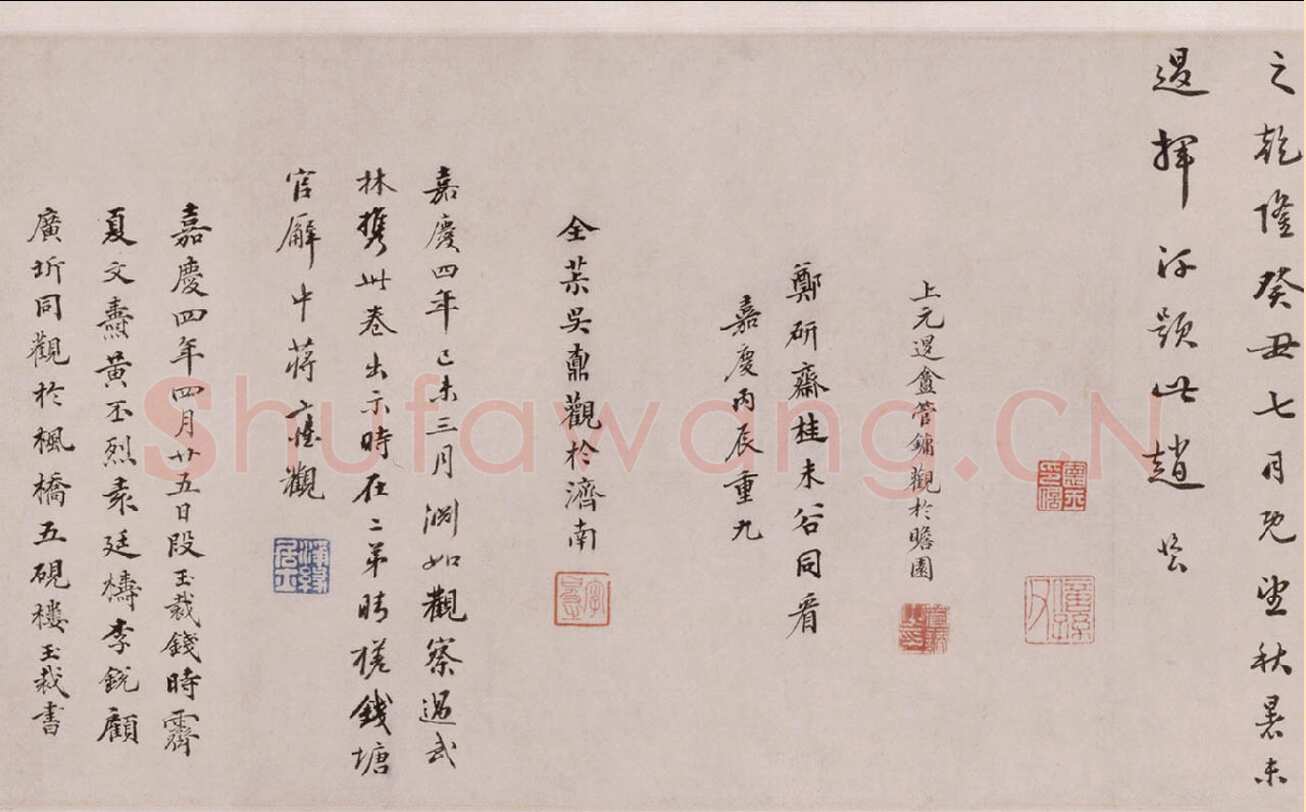 之乾隆癸丑七月既望秋暑未
退揮汗題此趙
上元退盦管鏞觀於瞻園
鄭研齋桂未谷同看
嘉慶丙辰重九
全茮吳鼒觀於濟南
嘉慶四年己未三月淵如觀察過武
林攜此卷出示時在二弟時權錢塘
官廨中蔣觀
嘉慶四年四月廿五日段玉裁錢時霽
夏文燾黃丕烈袁廷檮李銳顧
廣圻同觀於楓橋五硯樓玉裁書
Shufawang.CN